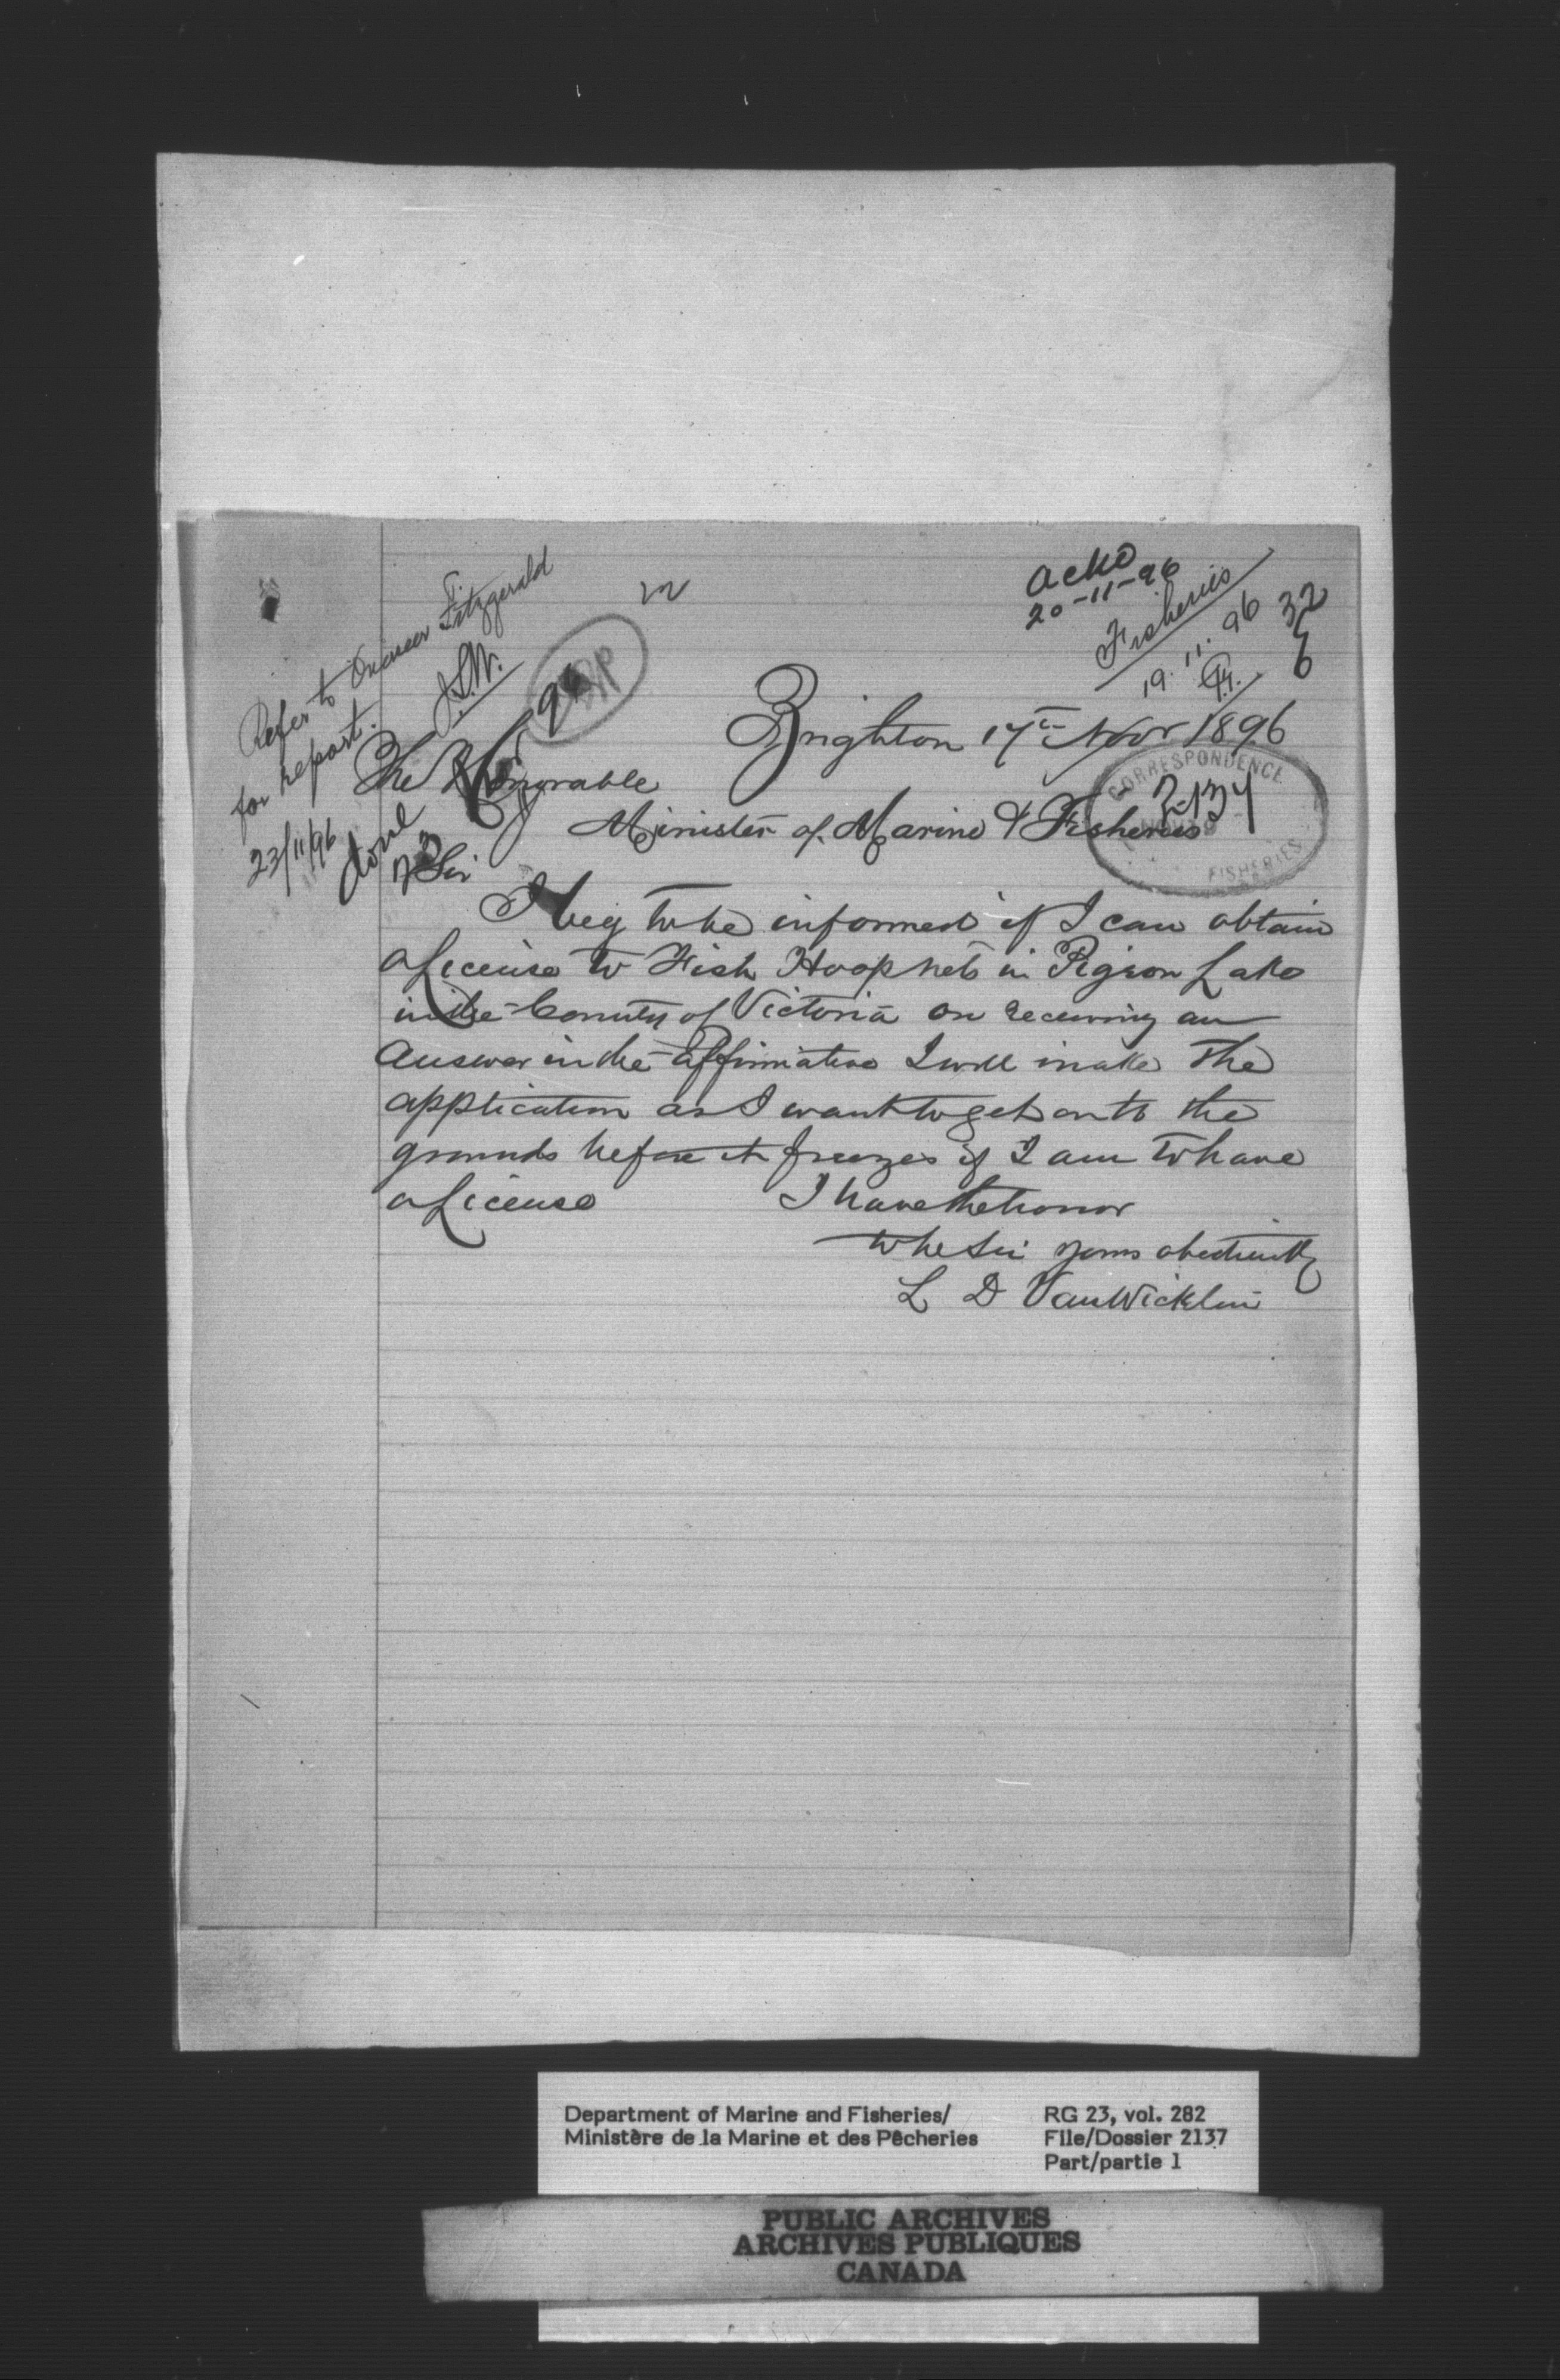 Ackd
20-11-96
Fisheries
19.11.96
32
6
Refer to Overseer Fitzgerald
for report.
J.S.W.
23/11/96
done
23
96
Brighton 17th Nov 1896
The Honorable
Minister of Marine & Fisheries
CORRESPONDENCE
2137
NOV 19
FISHERIES
Sir
I beg to be informed if I can obtain
a License to Fish Hoop nets in Pigeon Lake
in the County of Victoria on receiving an
answer in the affirmative I will make the
application as I want to get on to the
grounds before it freezes if I am to have
a License I have the honor
to be Sir yours obediently
L D VanWicklin
Department of Marine and Fisheries/
Ministère de la Marine et des Pêcheries
RG 23, vol. 282
File/Dossier 2137
Part/partie 1
PUBLIC ARCHIVES
ARCHIVES PUBLIQUES
CANADA